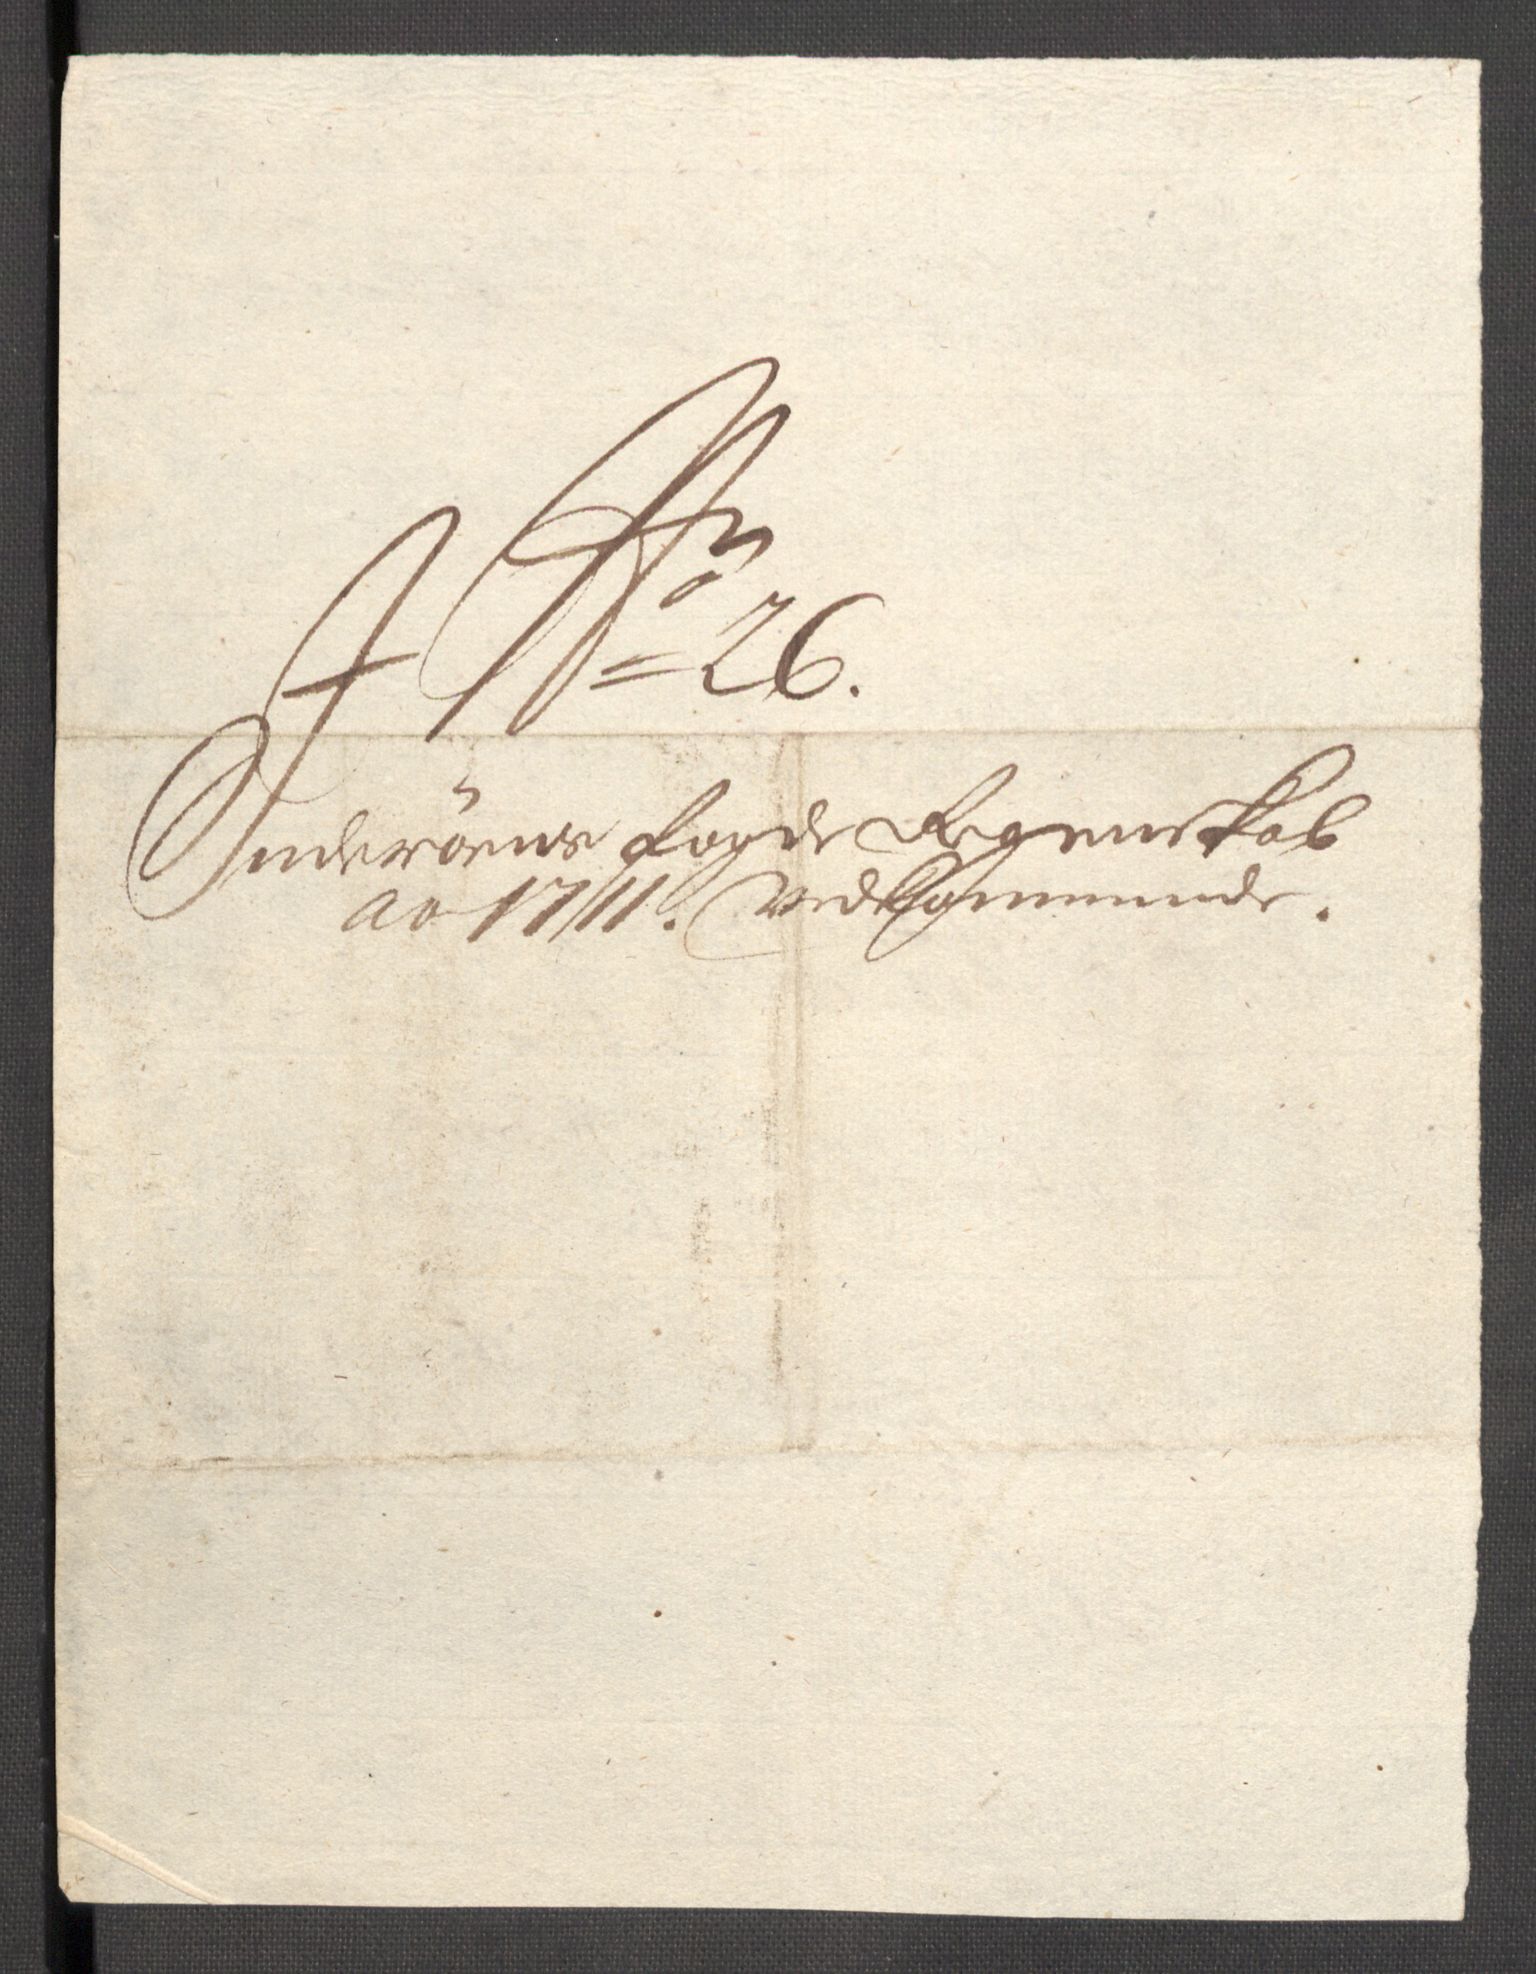 No 26.
Inderöens fogde Regenskab
ao 1711. Vedkommende.